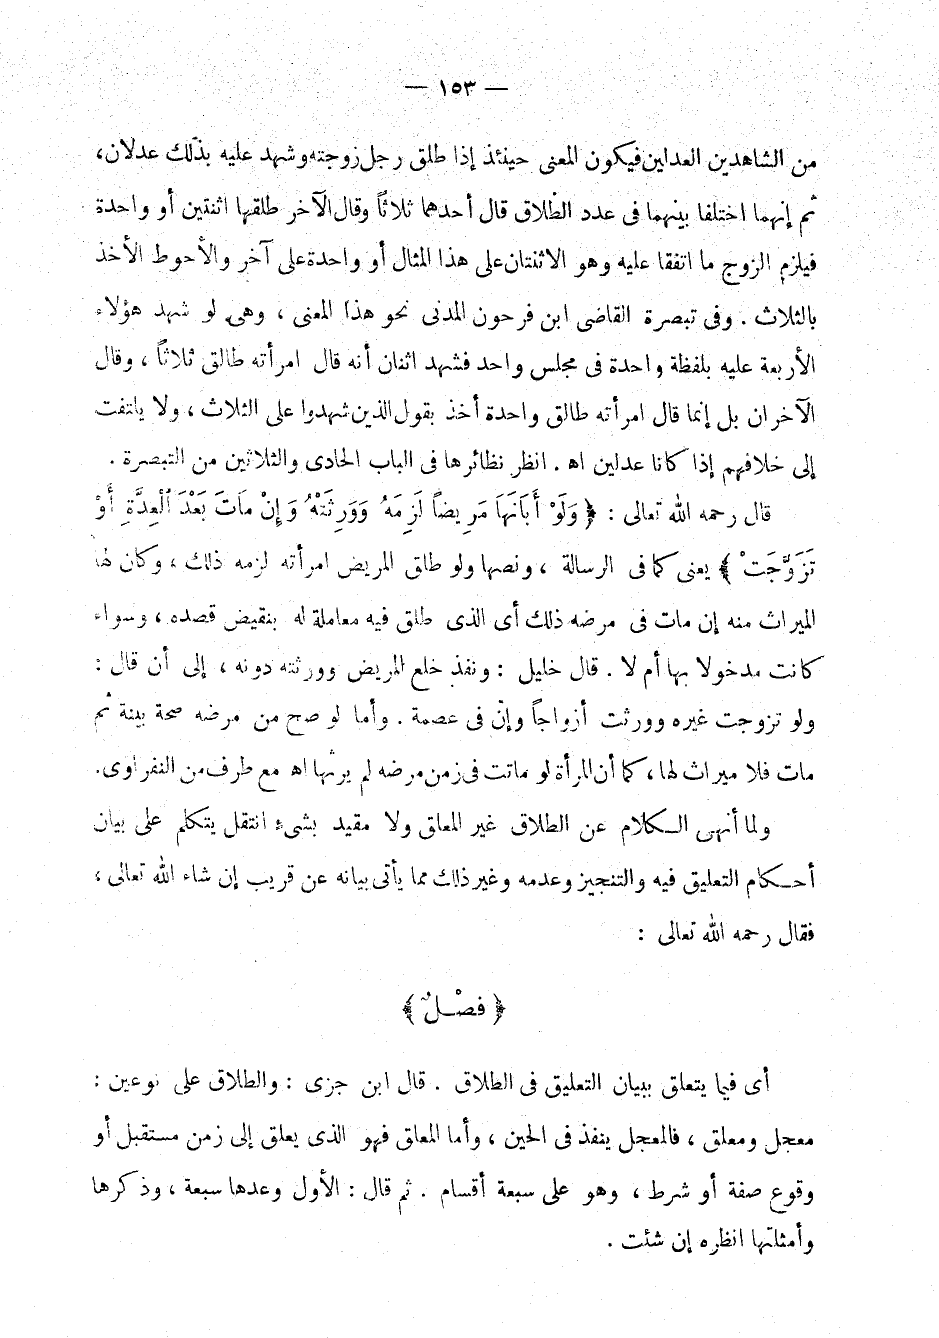 — ١٥٣ —
من الشاهدين العدلين فيكون المعنى حينئذ إذا طلق رجل زوجته وشهد عليه بذلك عدلان،
ثم إنهما اختلفا بينهما فى عدد الطلاق قال أحدهما ثلاثاً وقال الآخر طلقها اثنتين أو واحدة
فيلزم الزوج ما اتفقا عليه وهو الاثنتان على هذا المثال أو واحدة على آخر والأحوط الأخذ
بالثلاث . وفى تبصرة القاضى ابن فرحون المدنى نحو هذا المعنى ، وهى لو شهد هؤلاء
الأربعة عليه بلفظة واحدة فى مجلس واحد فشهد اثنان أنه قال امرأته طالق ثلاثاً ، وقال
الآخران بل إنما قال امرأته طالق واحدة أخذ بقول الذين شهدوا على الثلاث ، ولا يلتفت
إلى خلافهم إذا كانا عدلين اه . انظر نظائرها فى الباب الحادى والثلاثين من التبصرة .
قال رحمه الله تعالى : ﴿ وَلَوْ أَبَانَهَا مَرِيضاً لَزِمَهُ وَوَرِثَتْهُ وَإِنْ مَاتَ بَعْدَ الْعِدَّةِ أَوْ
تَزَوَّجَتْ ﴾ يعنى كما فى الرسالة ، ونصها ولو طلق المريض امرأته لزمه ذلك ، وكان لها
الميراث منه إن مات فى مرضه ذلك أى الذى طلق فيه معاملة له بنقيض قصده ، وسواء
كانت مدخولا بها أم لا . قال خليل : ونفذ خلع المريض وورثته دونه ، إلى أن قال :
ولو تزوجت غيره وورثت أزواجاً وإن فى عصمة . وأما لو صح من مرضه صحة بينة ثم
مات فلا ميراث لها ، كما أن المرأة لو ماتت فى زمن مرضه لم يرثها اه مع طرف من النفراوى.
ولما أنهى الكلام عن الطلاق غير المعلق ولا مقيد بشىء انتقل يتكلم على بيان
أحكام التعليق فيه والتنجيز وعدمه وغير ذلك مما يأتى بيانه عن قريب إن شاء الله تعالى ،
فقال رحمه الله تعالى :
﴿ فصْلٌ ﴾
أى فيما يتعلق ببيان التعليق فى الطلاق . قال ابن جزى : والطلاق على نوعين :
معجل ومعلق ، فالمعجل ينفذ فى الحين ، وأما المعلق فهو الذى يعلق إلى زمن مستقبل أو
وقوع صفة أو شرط ، وهو على سبعة أقسام . ثم قال : الأول وعدها سبعة ، وذكرها
وأمثلتها انظره إن شئت .